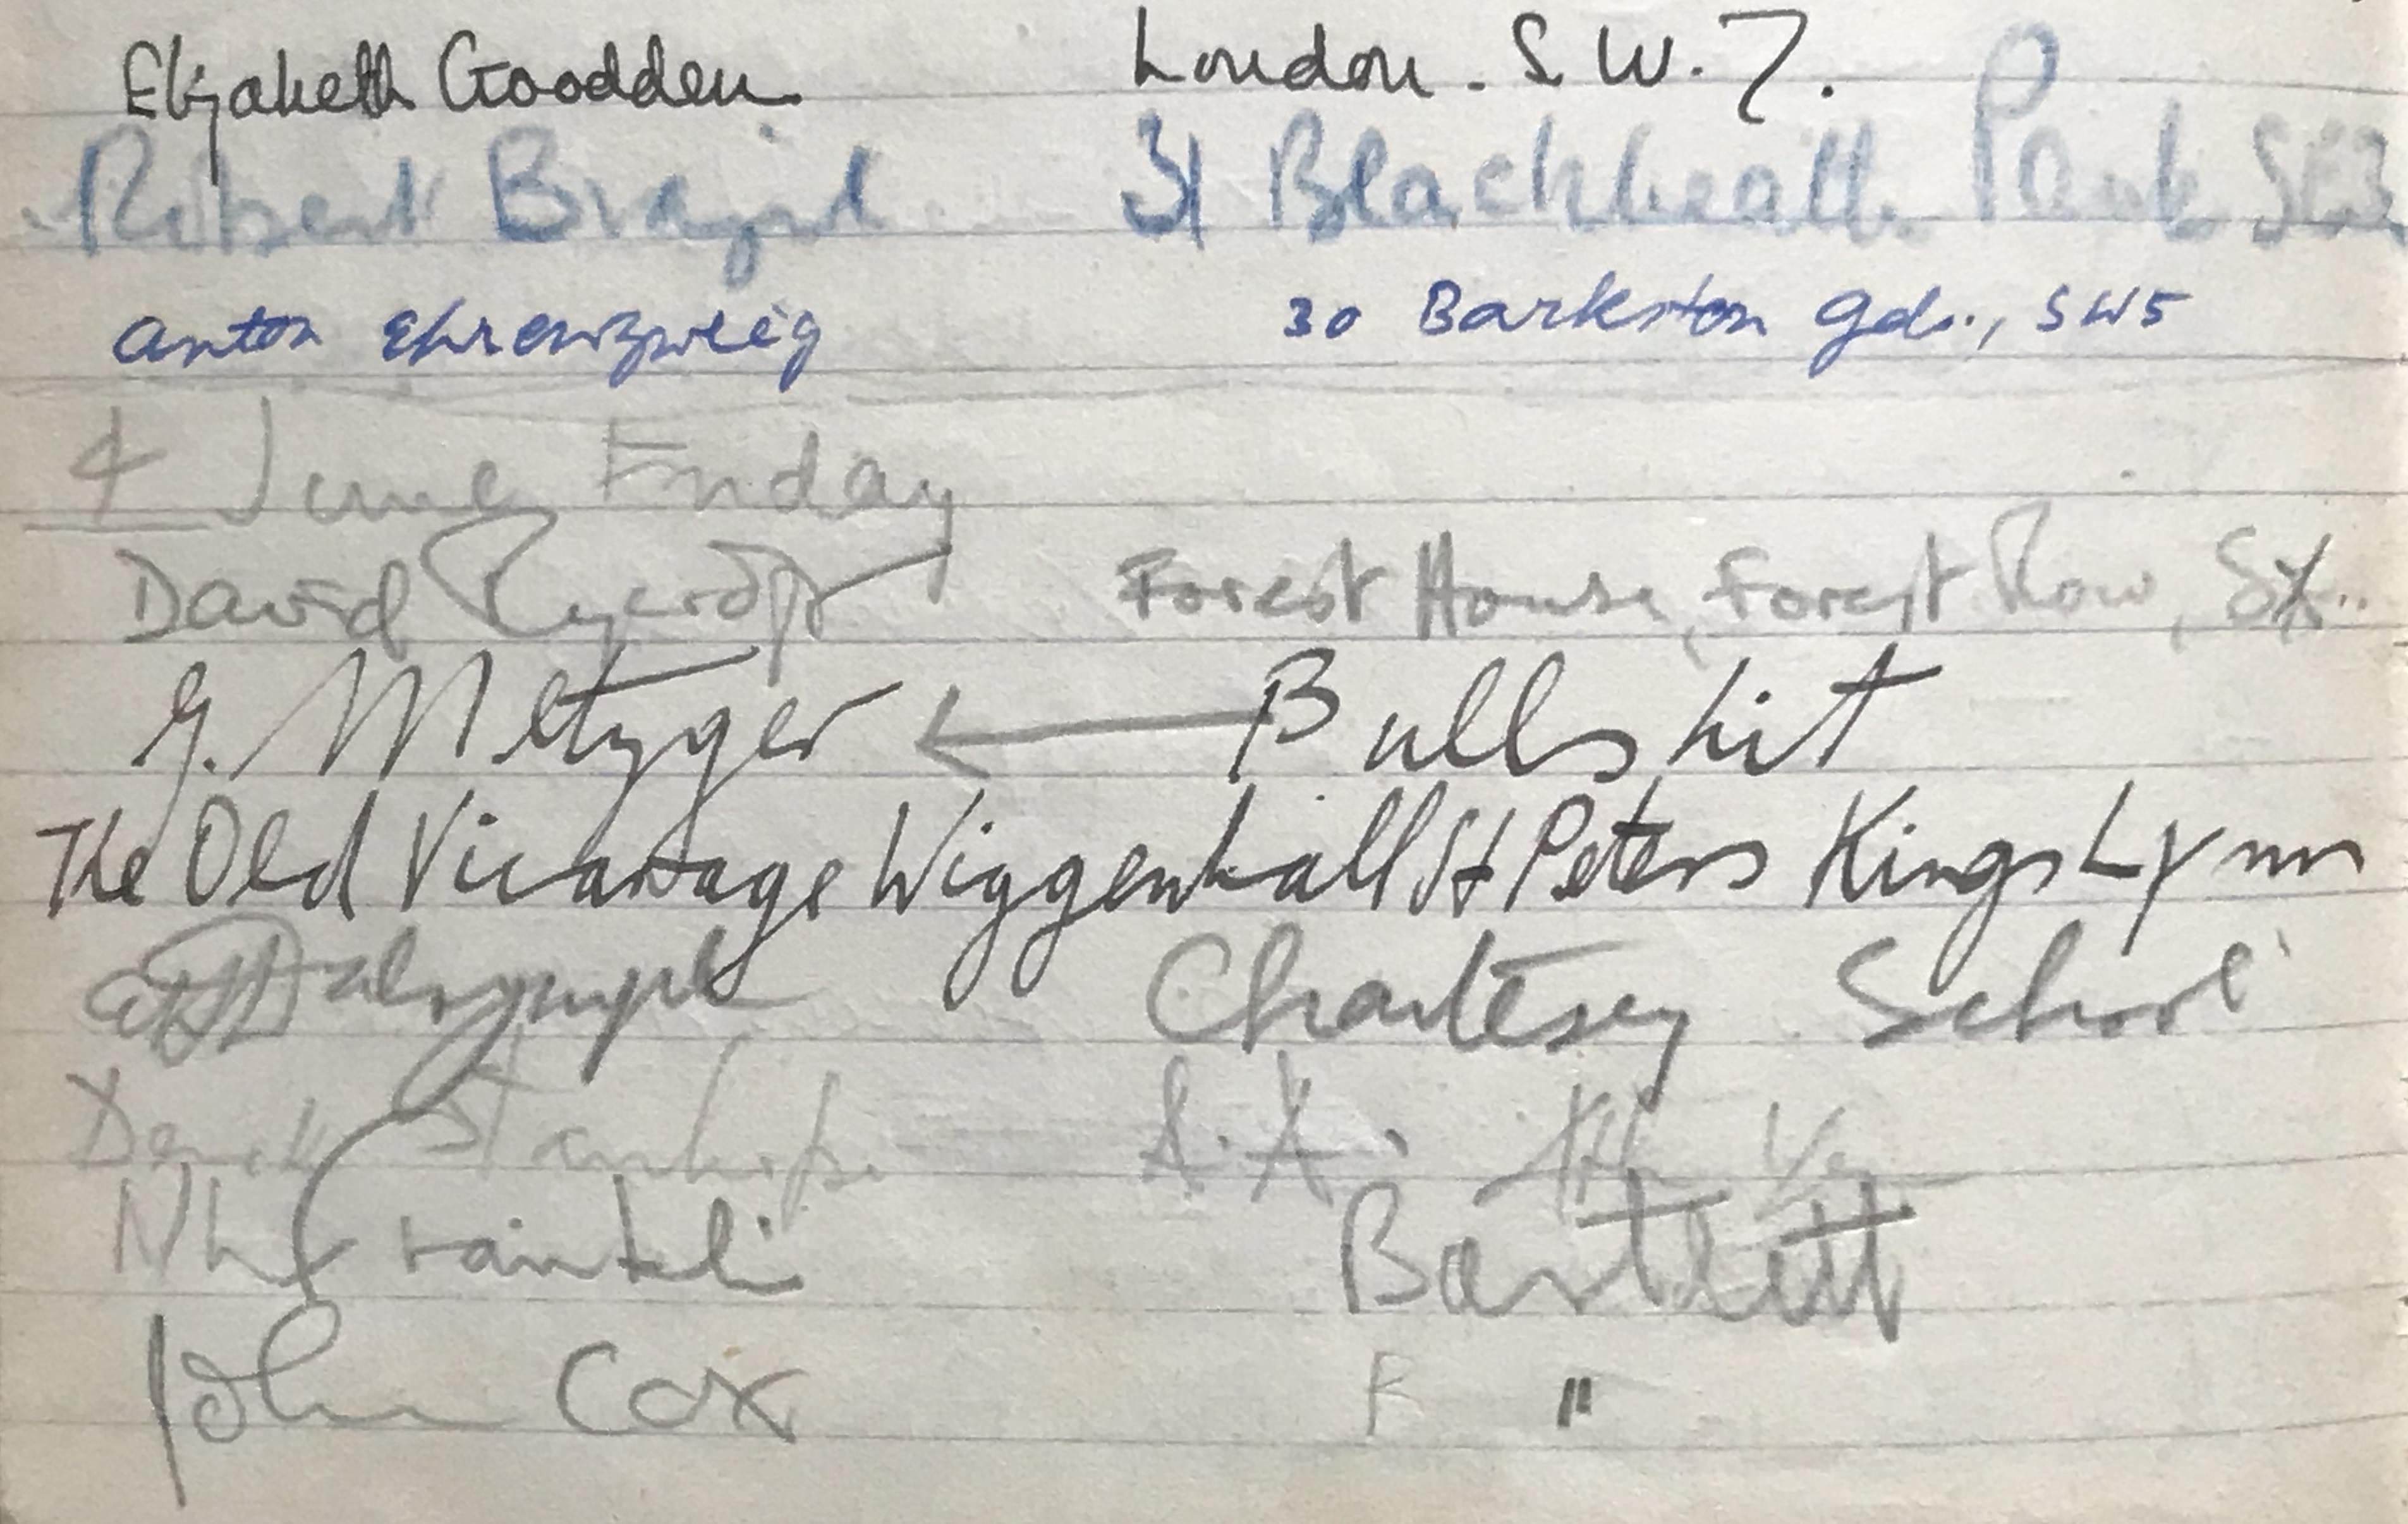 Elizabeth Goodden London. S.W.7.
Robert Brazil 31 Blackheath Park SE3
Anton Ehrenzweig 30 Barkston Gds., SW5
4 June Friday
David Rycroft Forest House, Forest Row, SX..
G. Metzger ← Bullshit
The Old Vicarage Wiggenhall St Peters Kings Lynn
Dalrymple Chartesey School
Derek Stanhope A.A.
NL Franklin Bartlett
John Cox "